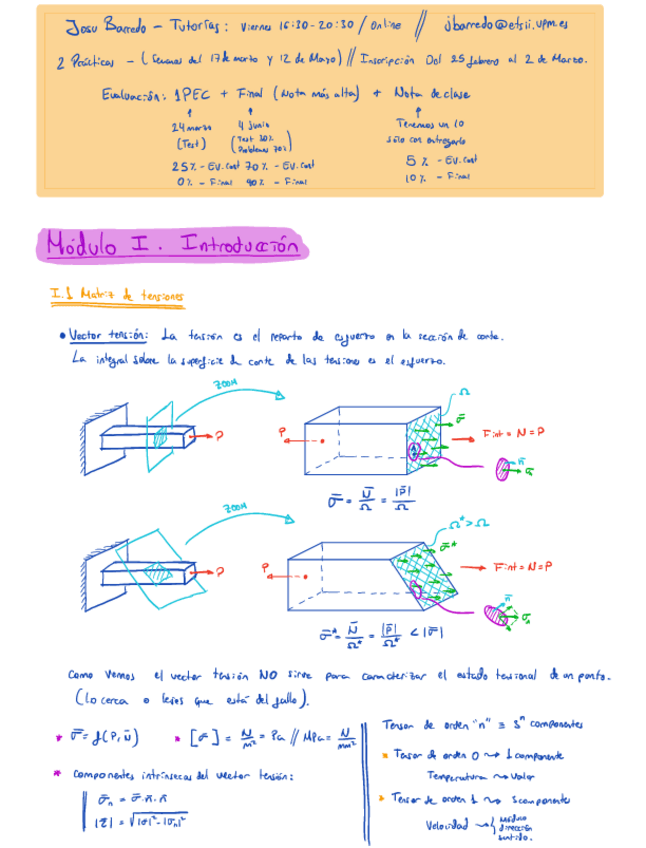 Josu Barredo - Tutorías: Viernes 16:30-20:30 / Online // jbarredo@etsii.upm.es
2 Prácticas - (Semanas del 17 de marzo y 12 de Mayo) // Inscripción Del 25 febrero al 2 de Marzo.
Evaluación: 1 PEC + Final (Nota más alta) + Nota de clase
24 marzo 4 Junio Tenemos un 10
(Test) (Test 30% Problemas 70%) sólo con entregarlo
25% - Ev. Cont 70% - Ev. Cont 5% - Ev. Cont
0% - Final 90% - Final 10% - Final
Módulo I. Introducción
I.1 Matriz de tensiones
• Vector tensión: La tensión es el reparto de esfuerzo en la sección de corte.
La integral sobre la superficie de corte de las tensiones es el esfuerzo.
ZOOM
Ω
P P σ̄ Fint = N = P
n̄ σn
σ̄ = N̄/Ω = |P̄|/Ω
ZOOM
Ω* > Ω
P P σ̄* Fint = N = P
n̄ σn
σ̄* = N̄/Ω* = |P̄|/Ω* < |σ̄|
Como vemos el vector tensión NO sirve para caracterizar el estado tensional de un punto.
(Lo cerca o lejos que está del fallo).
* σ̄ = f(P, n̄) * [σ] = N/m² = Pa // MPa = N/mm²
* Componentes intrínsecas del vector tensión:
σ̄n = σ̄·n̄·n̄
|τ| = √|σ|² - |σn|²
Tensor de orden "n" ≡ 3ⁿ componentes
* Tensor de orden 0 → 1 componente
Temperatura → Valor
* Tensor de orden 1 → 3 componente
Velocidad → { Módulo
dirección
sentido.